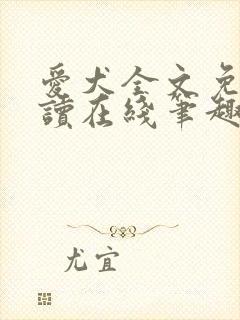 愛犬全文免
讀在綫筆趣
尤宜